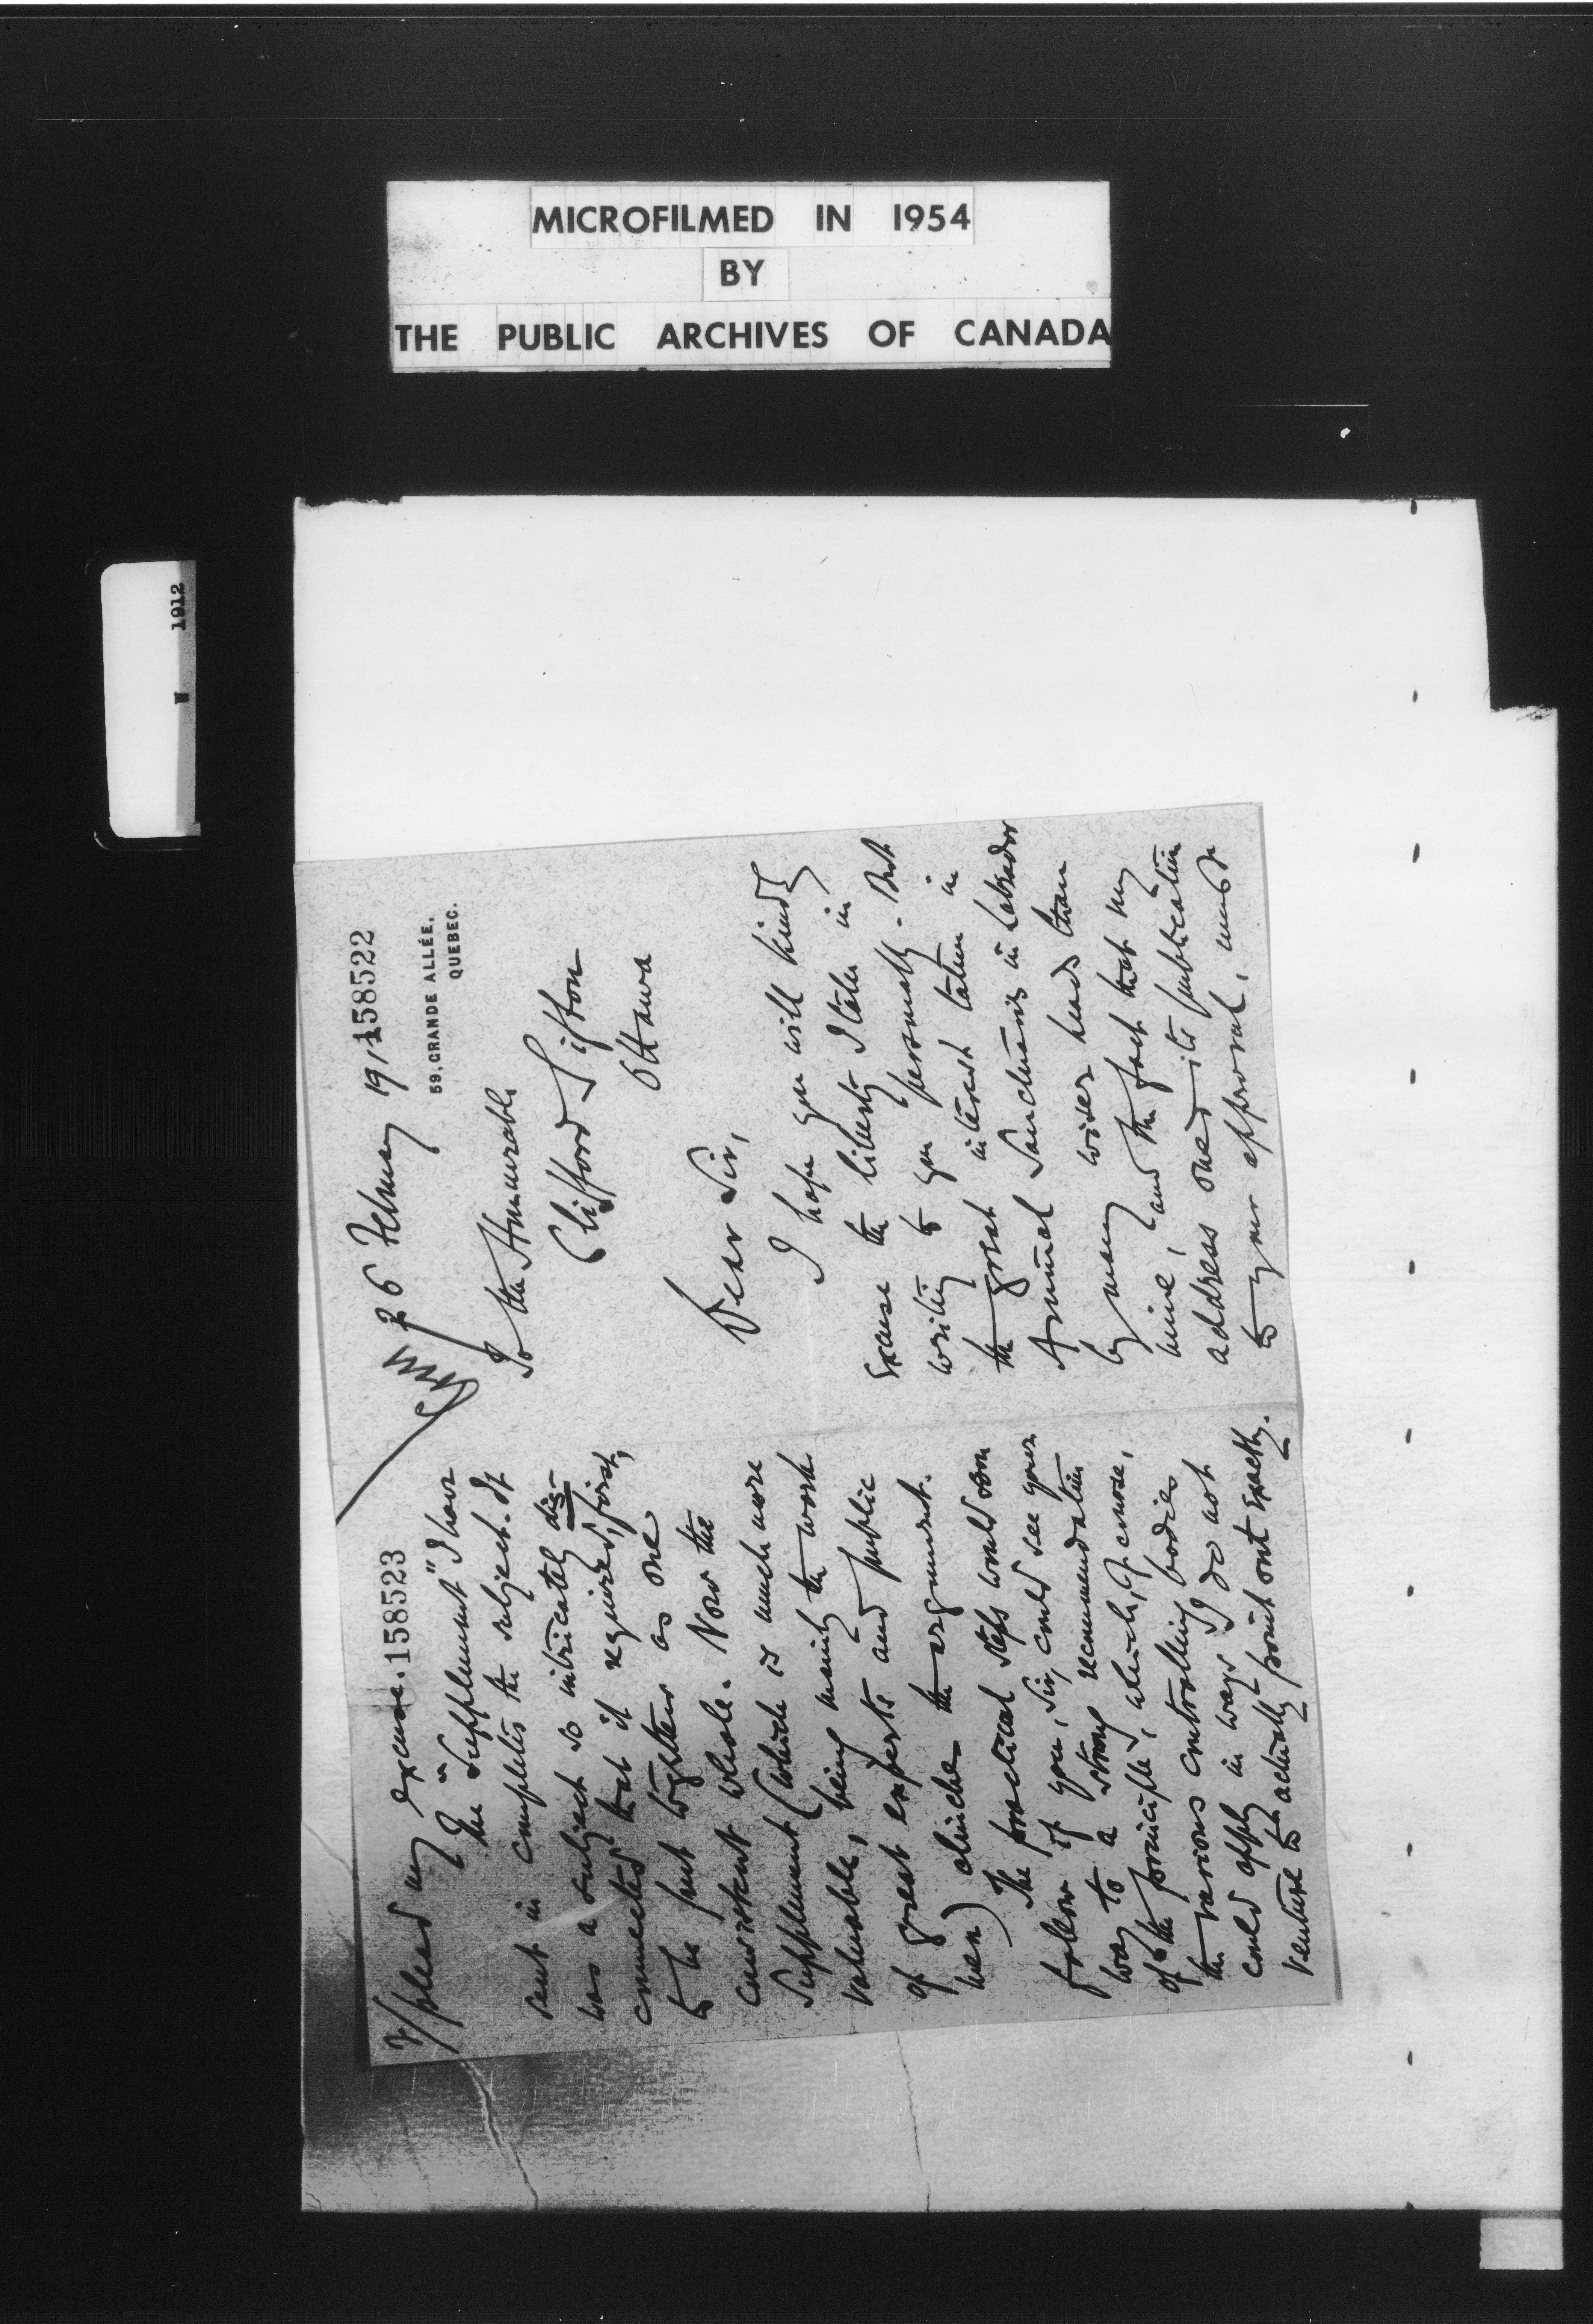 MICROFILMED IN 1954
BY
THE PUBLIC ARCHIVES OF CANADA
W 1912
158522
26 February 191
59, GRANDE ALLÉE,
QUEBEC.
To the Honourable
Clifford Sifton
Ottawa
Dear Sir,
I hope you will kindly
excuse the liberty I take in
writing to you personally. But
the great interest taken in
Animal Sanctuaries in Labrador
by many wiser heads than
mine, and the fact that my
address owed its publication
to your approval, must
2/ plead my excuse. 158523
The "Supplement" I have
sent in completes the subject. It
was a subject so intricately dis-
connected that it required, first,
to be put together as one
consistent whole. Now the
Supplement (which is much more
valuable, being mainly the work
of great experts and public
men) clinches the argument.
The practical steps would soon
follow if you, Sir, could see your
way to a strong recommendation
of the principle, which, of course,
the various controlling bodies
could apply in ways I do not
venture to actually point out exactly.